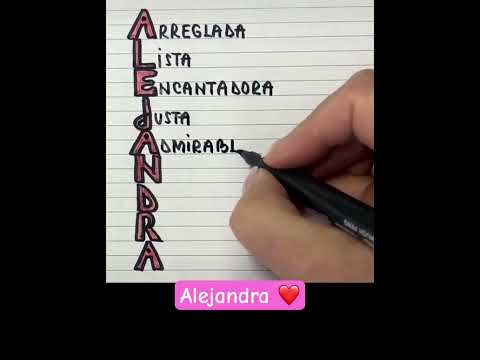 ARREGLADA
LiSTA
ENCANTADORA
JUSTA
ADMiRABL
N
D
R
A
Alejandra ❤️